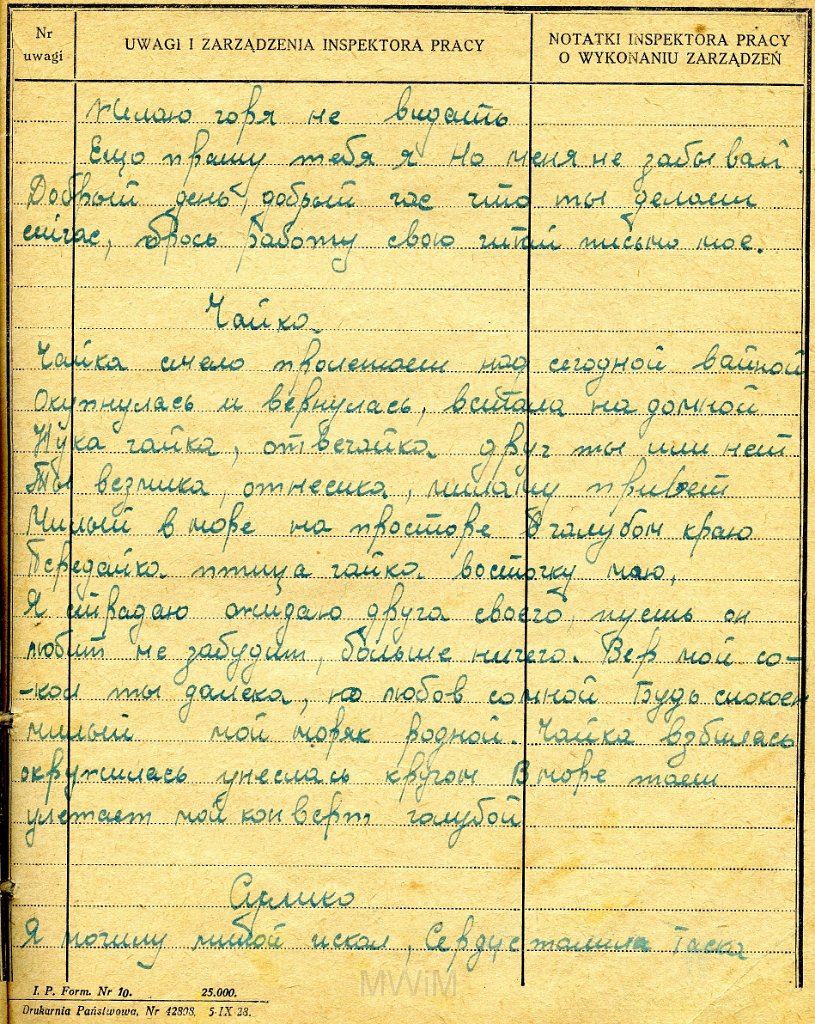 Nr uwagi
UWAGI I ZARZĄDZENIA INSPEKTORA PRACY
NOTATKI INSPEKTORA PRACY
O WYKONANIU ZARZĄDZEŃ
Желаю горя не видать
Ещо прашу тебя я но меня не забывай.
Добрый день, добрый час что ты делаеш
сичас, брось работу свою читай письмо мое.
Чайка
Чайка смело пролетает над сегодной вайной
Окунулась и вернулась, встала на домной
Нука чайка, отвечайка друг ты или нет
Ты везмика, отнесика, миламу привет
Милый в море на просторе В галубом краю
Передайка птица чайка восточку маю,
Я страдаю ожидаю друга своего, пусть он
любит не забудит, больше ничего. Вер мой со-
-кол ты далека, но любов сомной Будь спокоен
милый мой моряк родной. Чайка взвилась
окружилась унеслась кругом В море таеш
улетает мой конверт голубой
Сулико
Я могилу милой искал, Сердце томила Таска
I. P. Form. Nr 10. 25.000.
Drukarnia Państwowa, Nr 42808, 5-IX-28.
MWiM